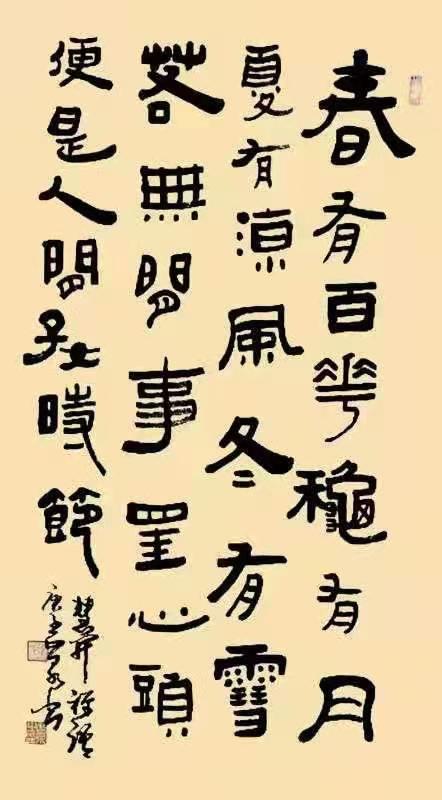 春有百華穐有月
夏有涼風冬有雪
若無閒事罣心頭
便是人閒好時節
慧開禅語
庚子